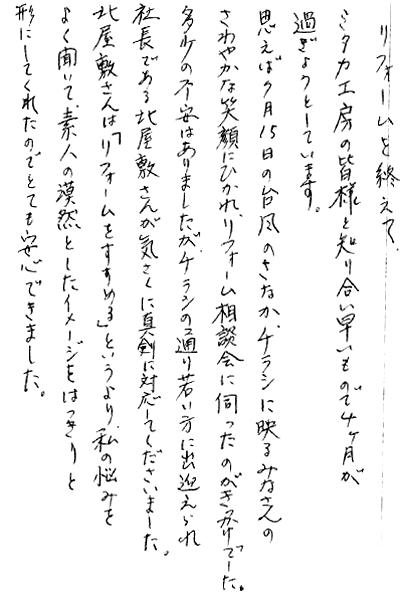 リフォームを終えて、
ミタカ工房の皆様と知り合い早いもので4ヶ月が
過ぎようとしています。
思えば7月15日の台風のさなか、チラシに映るみなさんの
さわやかな笑顔にひかれ、リフォーム相談会に伺ったのがきっかけでした。
多少の不安はありましたが、チラシの通り若い方に出迎えられ
社長である北屋敷さんが気さくに真剣に対応してくださいました。
北屋敷さんは「リフォームをすすめる」というより、私の悩みを
よく聞いて、素人の漠然としたイメージをはっきりと
形にしてくれたのでとても安心できました。